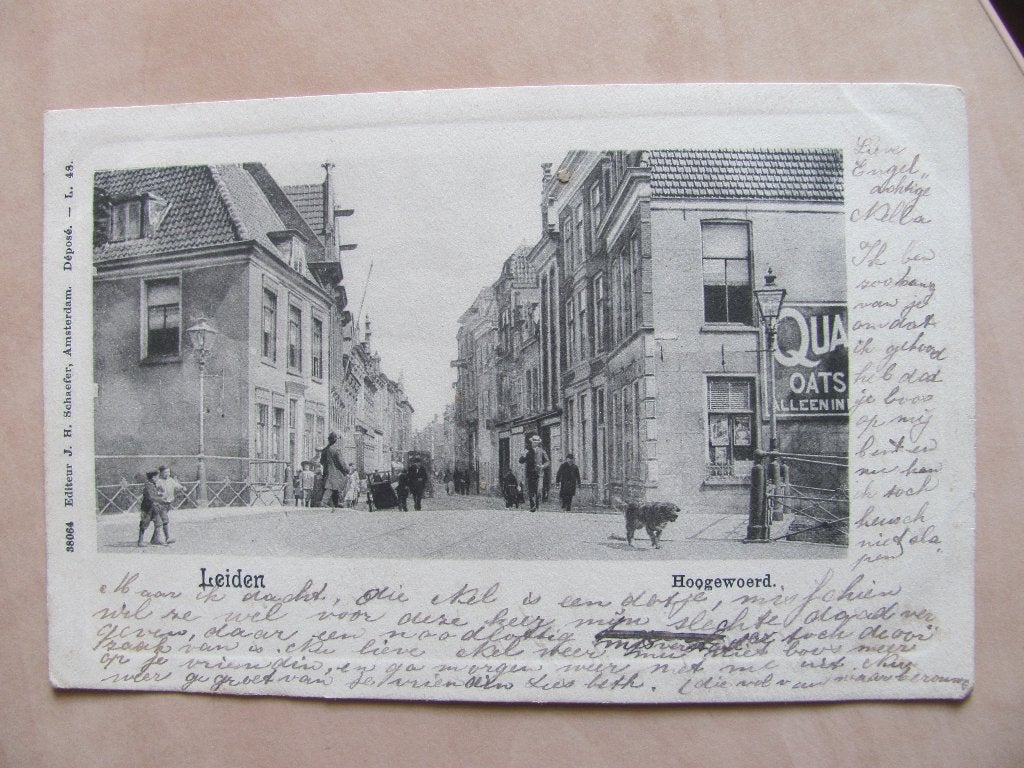 38064 Editeur J. H. Schaefer, Amsterdam. Déposé. — L. 48.
QUA
OATS
ALLEEN IN
Leiden
Hoogewoerd.
Lieve
Engel„
achtige
Nella
Ik ben
zoo bang
van je
omdat
ik gehoord
heb dat
je boos
op mij
bent en
nu kan
ik toch
heusch
niet sla
pen.
Maar ik dacht, die Nel is een dotje, misschien
wil ze wel voor deze keer mijn slechte daad ver
geven, daar een noodlottig misverstand toch de oor
zaak van is. Nu lieve Nel weer niet boos meer
op je vriendin, en ga morgen weer met me uit. Nu
weer gegroet van je vriendin Liesbeth. (die vol van naar berouw